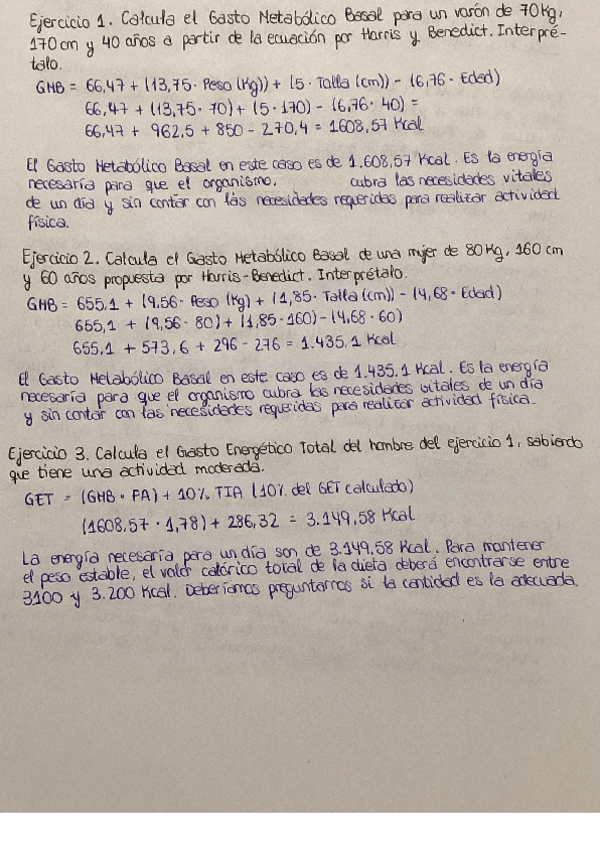 Ejercicio 1. Calcula el Gasto Metabólico Basal para un varón de 70Kg,
170 cm y 40 años a partir de la ecuación por Harris y Benedict. Interpré-
talo.
GMB = 66,47 + (13,75 · Peso (Kg)) + (5 · Talla (cm)) - (6,76 · Edad)
66,47 + (13,75 · 70) + (5 · 170) - (6,76 · 40) =
66,47 + 962,5 + 850 - 270,4 = 1608,57 Kcal
El Gasto Metabólico Basal en este caso es de 1.608,57 Kcal. Es la energía
necesaria para que el organismo, cubra las necesidades vitales
de un día y sin contar con las necesidades requeridas para realizar actividad
física.
Ejercicio 2. Calcula el Gasto Metabólico Basal de una mujer de 80Kg, 160 cm
y 60 años propuesta por Harris-Benedict. Interprétalo.
GMB = 655,1 + (9,56 · Peso (Kg) + (1,85 · Talla (cm)) - (4,68 · Edad)
655,1 + (9,56 · 80) + (1,85 · 160) - (4,68 · 60)
655,1 + 573,6 + 296 - 276 = 1.435,1 Kcal
El Gasto Metabólico Basal en este caso es de 1.435,1 Kcal. Es la energía
necesaria para que el organismo cubra las necesidades vitales de un día
y sin contar con las necesidades requeridas para realizar actividad física.
Ejercicio 3. Calcula el Gasto Energético Total del hombre del ejercicio 1, sabiendo
que tiene una actividad moderada.
GET = (GMB · FA) + 10% TIA (10% del GET calculado)
(1608,57 · 1,78) + 286,32 = 3.149,58 Kcal
La energía necesaria para un día son de 3.149,58 Kcal. Para mantener
el peso estable, el valor calórico total de la dieta deberá encontrarse entre
3100 y 3.200 Kcal. Deberíamos preguntarnos si la cantidad es la adecuada.